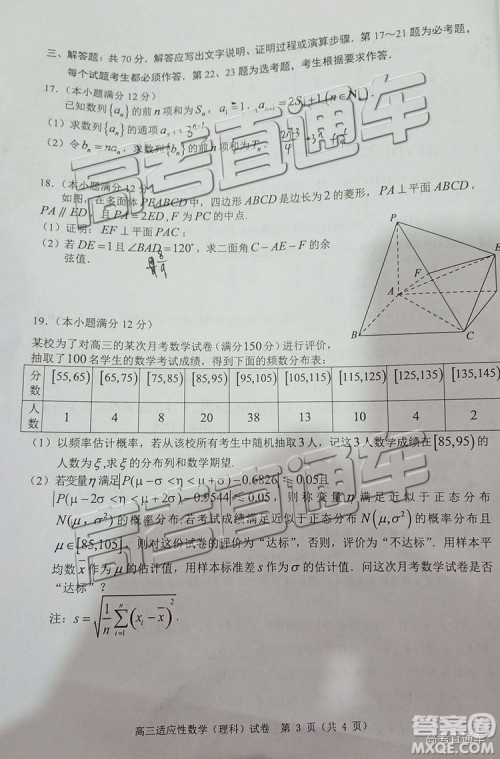 三、解答题：共 70 分．解答应写出文字说明、证明过程或演算步骤．第 17～21 题为必考题，
每个试题考生都必须作答．第 22、23 题为选考题，考生根据要求作答．
17.（本小题满分 12 分）
已知数列{aₙ}的前 n 项和为Sₙ，a₁=1，aₙ₊₁=2Sₙ+1(n∈N₊)．
（1）求数列{aₙ}的通项aₙ；
（2）令bₙ=naₙ，求数列{bₙ}的前 n 项和为Tₙ．
18.（本小题满分 12 分）
如图，在多面体PEABCD中，四边形ABCD是边长为 2 的菱形，PA⊥平面ABCD，
PA∥ED，且PA=2ED，F为PC的中点．
（1）证明：EF⊥平面PAC；
（2）若DE=1且∠BAD=120°，求二面角C－AE－F的余
弦值．
P
E
F
A
B
C
19.（本小题满分 12 分）
某校为了对高三的某次月考数学试卷（满分150分）进行评价，
抽取了100名学生的数学考试成绩，得到下面的频数分布表：
分数 [55,65) [65,75) [75,85) [85,95) [95,105) [105,115) [115,125) [125,135) [135,145)
人数 1 4 8 20 38 13 10 4 2
（1）以频率估计概率，若从该校所有考生中随机抽取3人，记这3人数学成绩在[85,95)的
人数为ξ,求ξ的分布列和数学期望．
（2）若变量η满足|P(μ－σ<η<μ+σ)－0.6826|≤0.05且
|P(μ－2σ<η<μ+2σ)－0.9544|≤0.05，则称变量η满足近似于正态分布
N(μ,σ²)的概率分布.若考试成绩满足近似于正态分布N(μ,σ²)的概率分布且
μ∈[85,105]，则对这份试卷的评价为“达标”，否则，评价为“不达标”．用样本平
均数x̄作为μ的估计值，用样本标准差s作为σ的估计值．问这次月考数学试卷是否
“达标”？
注：s=√(1/n ∑ᵢ₌₁ⁿ(xᵢ－x̄)²)．
高三适应性数学（理科）试卷 第 3 页（共 4 页）
高考直通车
高考直通车
高考直通车
作业帮
MXQE.COM